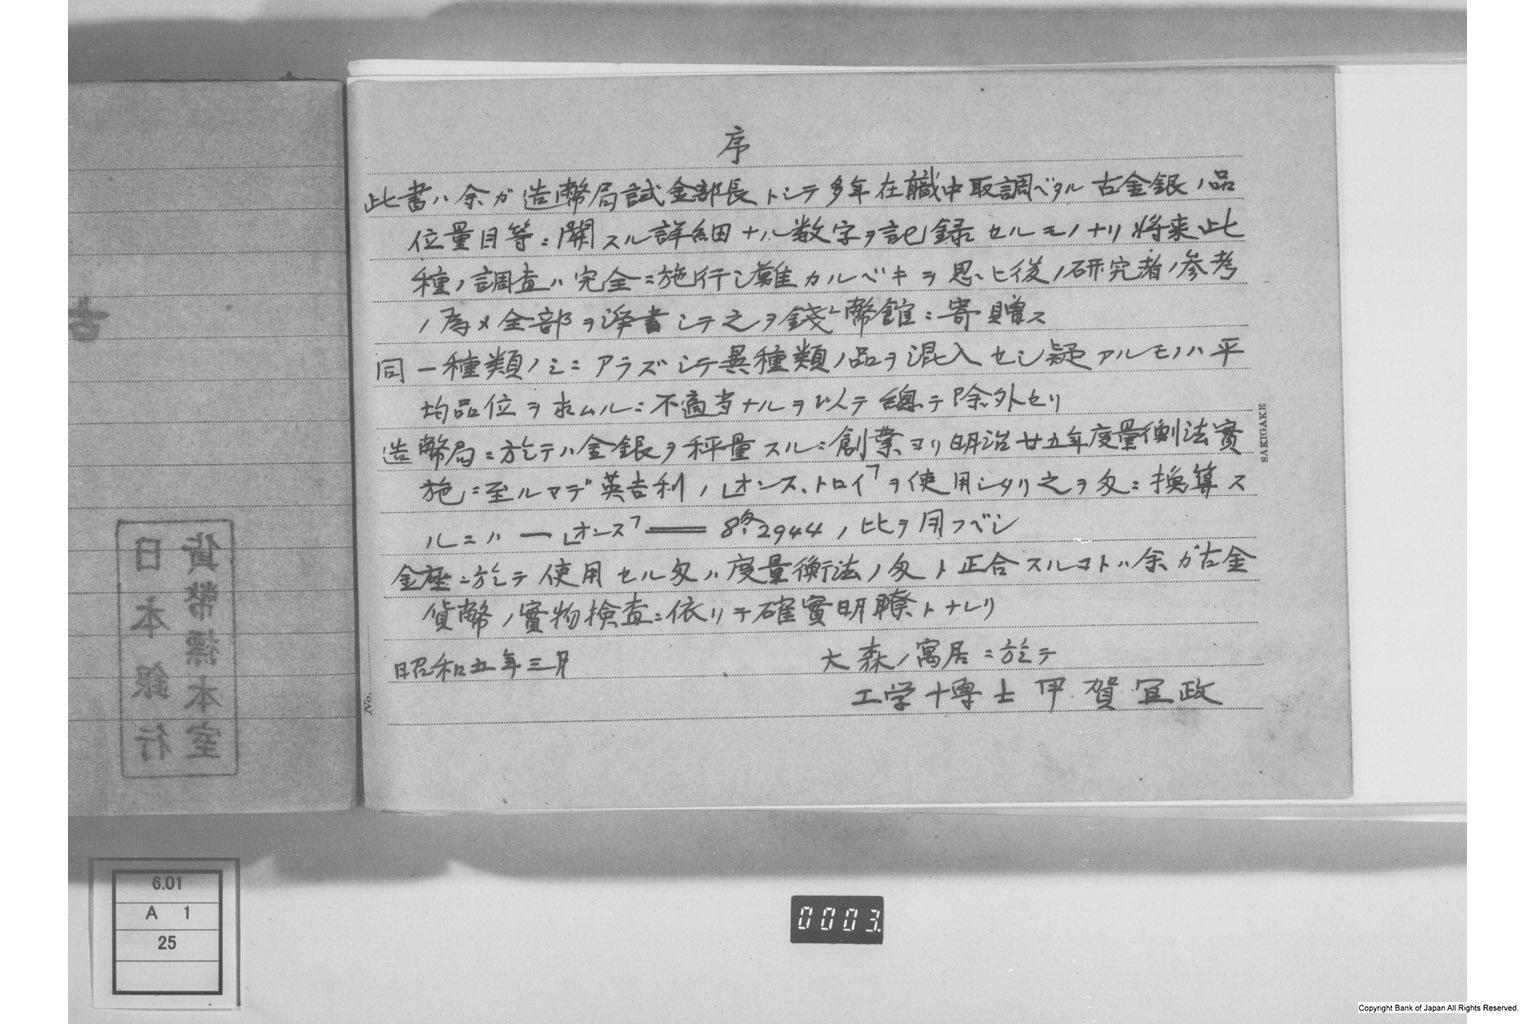 序
此書ハ余ガ造幣局試金部長トシテ多年在職中取調ベタル古金銀ノ品
位量目等ニ関スル詳細ナル数字ヲ記録セルモノナリ将来此
種ノ調査ハ完全ニ施行シ難カルベキヲ思ヒ後ノ研究者ノ参考
ノ為メ全部ヲ浄書シテ之ヲ銭幣館ニ寄贈ス
同一種類ノミニアラズシテ異種類ノ品ヲ混入セシ疑アルモノハ平
均品位ヲ求ムルニ不適当ナルヲ以テ総テ除外セリ
造幣局ニ於テハ金銀ヲ秤量スルニ創業ヨリ明治廿五年度量衡法實
施ニ至ルマデ英吉利ノ「オンス、トロイ」ヲ使用シタリ之ヲ匁ニ換算ス
ルニハ 一「オンス」＝ 8匁2944 ノ比ヲ用フベシ
金座ニ於テ使用セル匁ハ度量衡法ノ匁ト正合スルコトハ余ガ古金
貨幣ノ實物検査ニ依リテ確實明瞭トナレリ
昭和五年三月
大森ノ寓居ニ於テ
工学博士 甲賀宜政
SAKIGAKE
No.
古
貨幣標本室
日本銀行
6.01
A 1
25
0003
Copyright Bank of Japan All Rights Reserved.